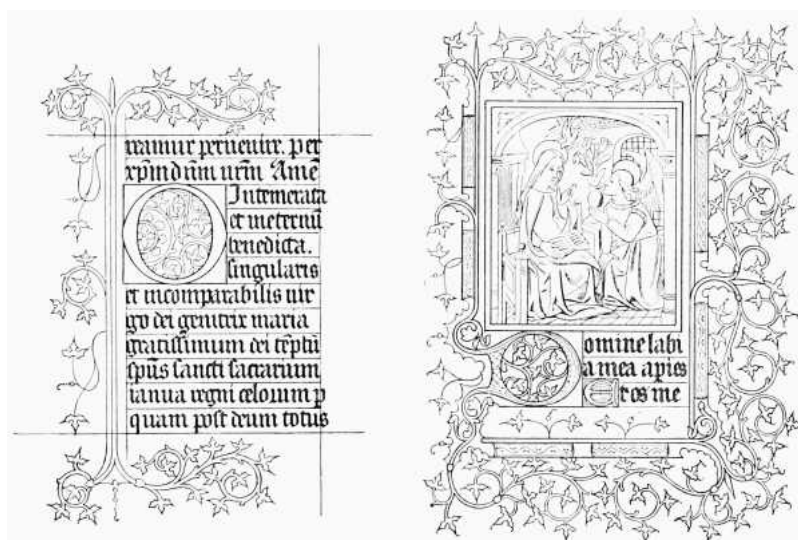 ramur peruenire. per
xp̄m dūm nrm̄ Amē
O Intemerata
et ineternū
benedicta.
singularis
et incomparabilis uir
go dei genitrix maria
gratissimum dei tēplū
spūs sancti sacrarium
ianua regni celorum p
quam post deum totus
Domine labi
a mea apies
Et os me